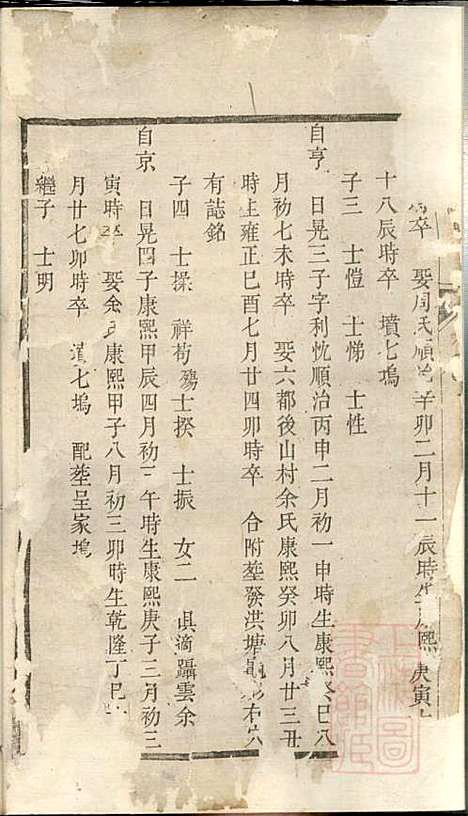 卒 娶周氏順治辛卯二月十一辰時生康熙庚寅
十八辰時卒 墳七塢
子三 士愷 士悌 士性
自亨 日晃三子字利忱順治丙申二月初一申時生康熙癸巳八
月初七未時卒 娶六都後山村余氏康熙癸卯八月廿三丑
時生雍正己酉七月廿四卯時卒 合附塟發洪塘
有誌銘
子四 士操 祥荀殤 士揆 士振 女二 俱適躡雲余
自京 日晃四子康熙甲辰四月初三午時生康熙庚子三月初三
寅時卒 娶余氏康熙甲子八月初三卯時生乾隆丁巳
月廿七卯時卒 七塢 配塟呈家塢
繼子 士明